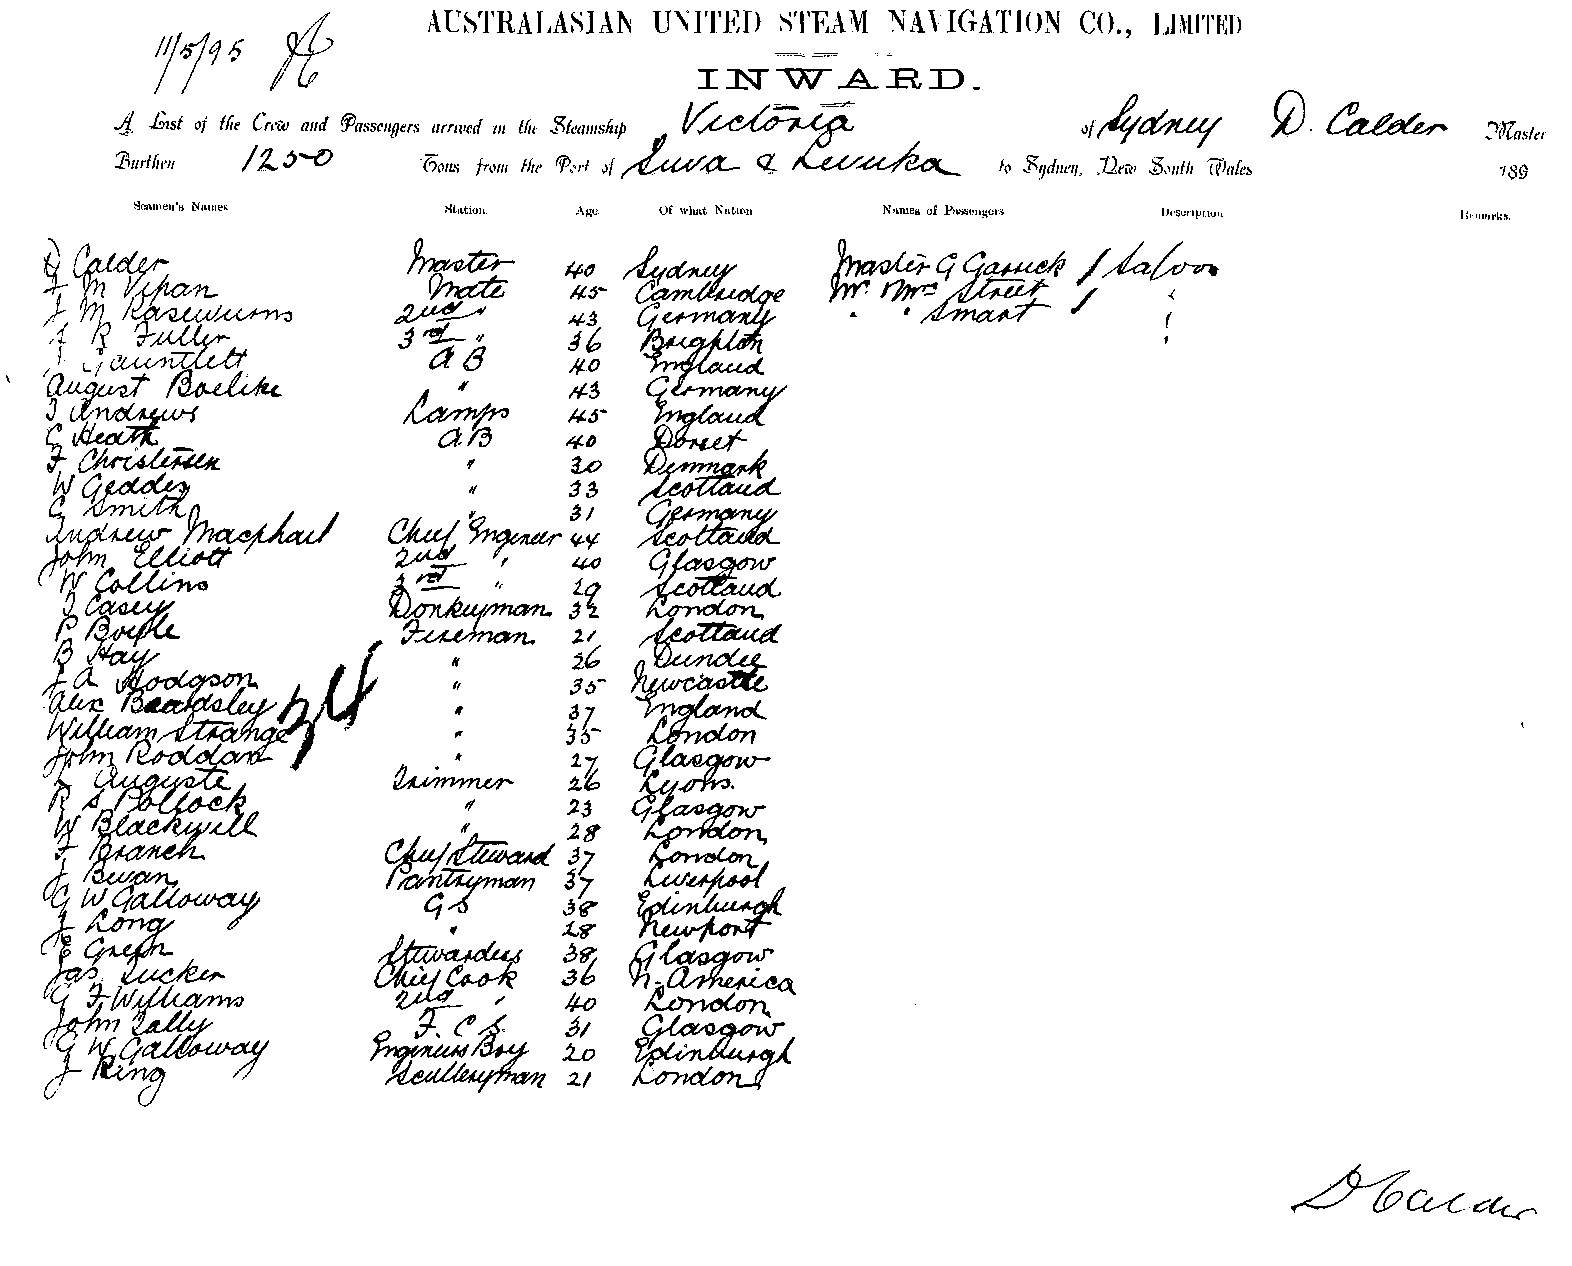 AUSTRALASIAN UNITED STEAM NAVIGATION CO., LIMITED
11/5/95
INWARD.
A List of the Crew and Passengers arrived in the Steamship Victoria of Sydney D. Calder Master
Burthen 1250 Tons from the Port of Suva & Levuka to Sydney, New South Wales 189
Seamen's Names Station Age Of what Nation Names of Passengers Description Remarks.
D Calder Master 40 Sydney Master G Garrick 1 Saloon
M Vipan Mate 45 Cambridge Mr Mrs Street 1 "
J M Rasewurms 2nd " 43 Germany " " Smart "
J R Fuller 3rd " 36 Brighton
J Gauntlett AB 40 England
August Boelike " 43 Germany
J Andrews Lamps 45 England
C Heath AB 40 Dorset
F Christersen " 30 Denmark
W Geddes " 33 Scotland
C Smith " 31 Germany
Andrew Macphail Chief Engineer 44 Scotland
John Elliott 2nd " 40 Glasgow
W Collins 3rd " 29 Scotland
J Casey Donkeyman 32 London
P Boyle Fireman 21 Scotland
B Hay " 26 Dundee
J A Hodgson " 35 Newcastle
Alex Beardsley " 37 England
William Strange " 35 London
John Roddan " 27 Glasgow
L Auguste Trimmer 26 Lyons.
R S Pollock " 23 Glasgow
W Blackwill " 28 London
F Branch Chief Steward 37 London
J Bevan Pantryman 37 Liverpool
G W Galloway G S 38 Edinburgh
J Long " 28 Newport
E Green Stewardess 38 Glasgow
Jas Tucker Chief Cook 36 N. America
G F Williams 2nd " 40 London
John Lally F. C S. 31 Glasgow
G W Galloway Engineers Boy 20 Edinburgh
J King Sculleryman 21 London
34
D Calder